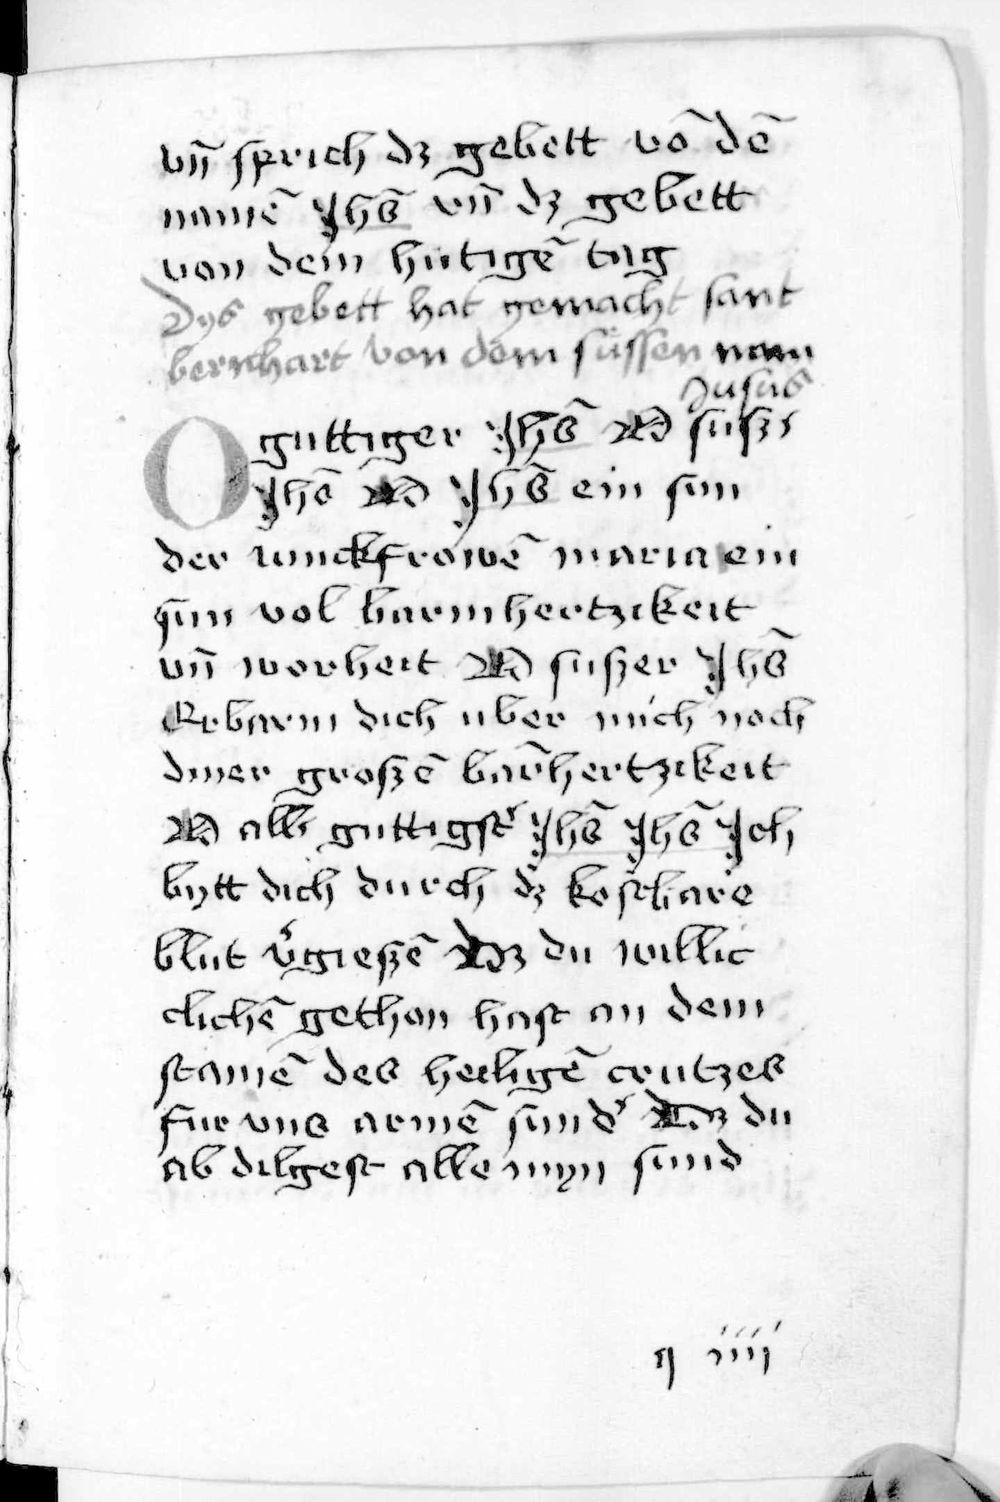 vn̄ sprich dz gebett võ dē
namē Jhs̄ vn̄ dz gebett
von dem hutigē tag
Dys gebett hat gemacht sant
bernhart von dem süssen nam
Jusus
O guttiger Jhs̄ O sußs
Jhs̄ O Jhs̄ ein sun
der iunckfrowē maria ein
sun vol barmhertzikeit
vn̄ worheit O sußer Jhs̄
Erbarm dich uber mich noch
diner großē barm̄hertzikeit
O aller guttigster Jhs̄ Jhs̄ Jch
bytt dich durch dz kostbare
blut v̾gießē Dz du willic
clichē gethon hast an dem
stamē des heiligē crutzes
fur vns armē sund̾ Dz du
ab dilgest alle myn sund
iiii